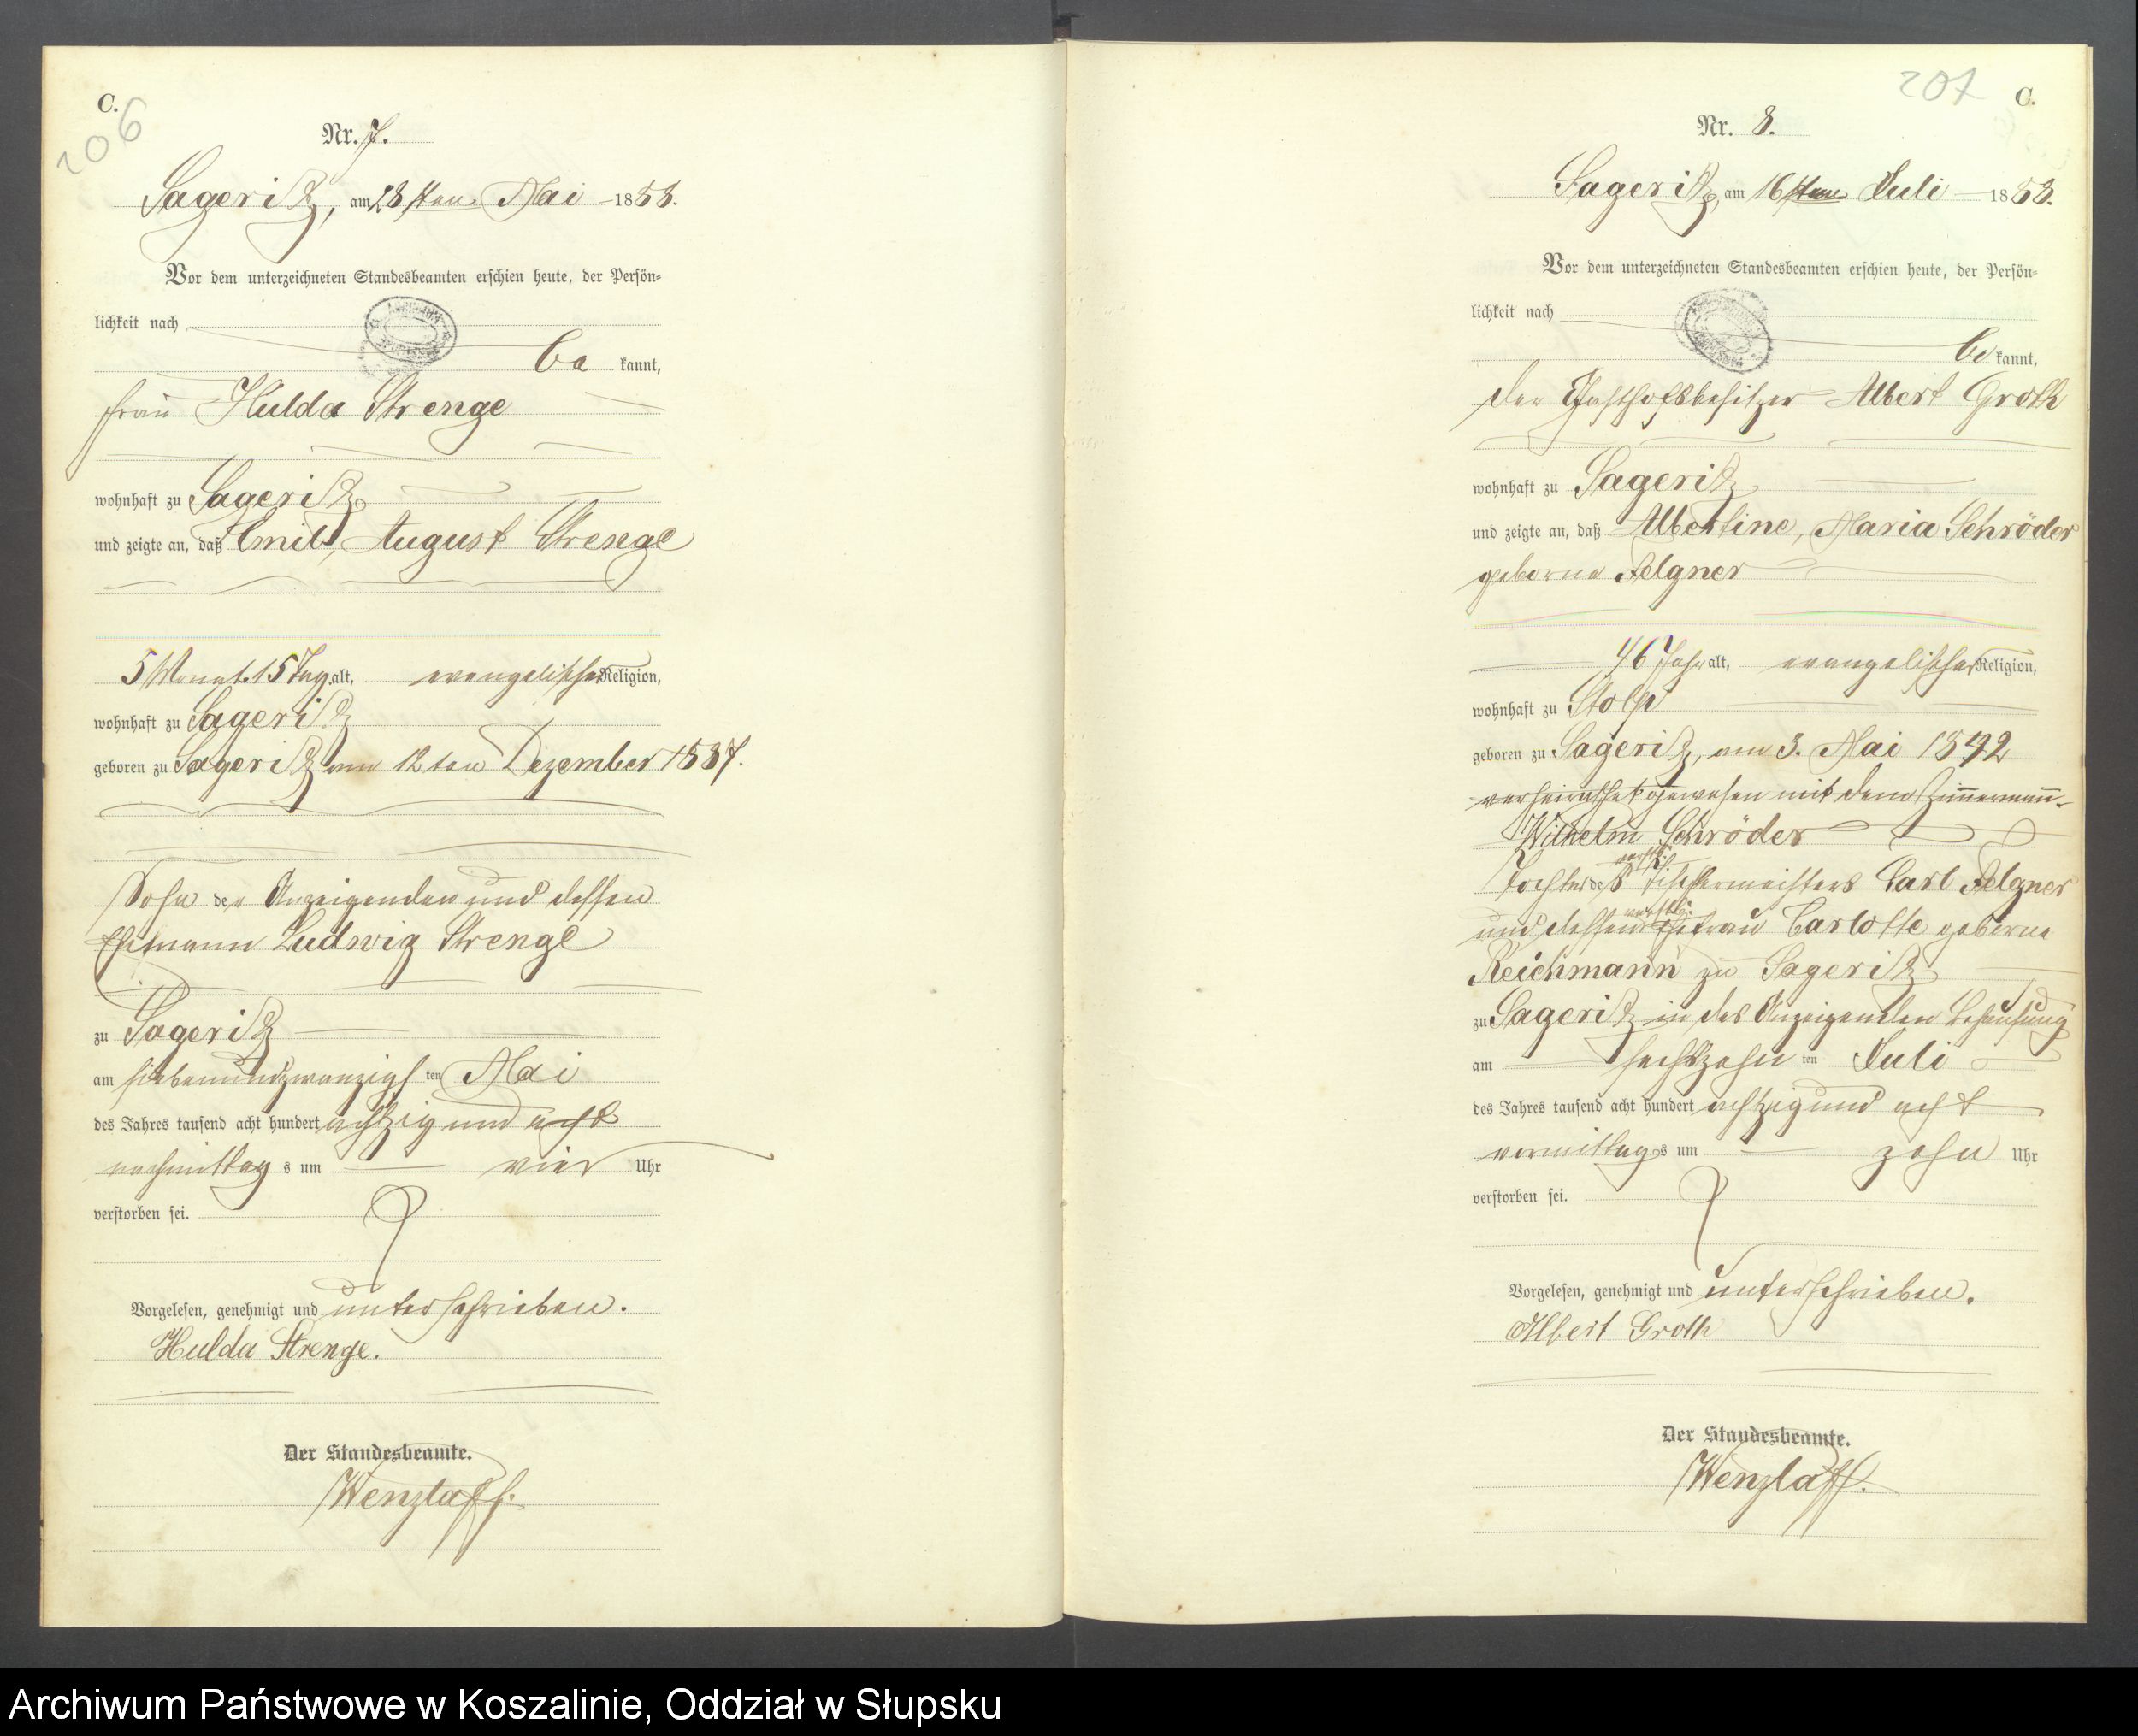 C.
206
Nr. 7.
Sageritz, am 28sten Mai 1888.
Vor dem unterzeichneten Standesbeamten erschien heute, der Persön-
lichkeit nach
be kannt,
Frau Hulda Strenge
wohnhaft zu Sageritz
und zeigte an, daß Emil, August Strenge
5 Monat 15 Tag alt, evangelischer Religion,
wohnhaft zu Sageritz
geboren zu Sageritz am 12ten Dezember 1887.
Sohn der Anzeigenden und dessen
Ehemann Ludwig Strenge
zu Sageritz
am siebenundzwanzigsten Mai
des Jahres tausend acht hundert achtzig und acht
nachmittag s um vier Uhr
verstorben sei.
Vorgelesen, genehmigt und unterschrieben.
Hulda Strenge.
Der Standesbeamte.
Wenzlaff.
207
C.
Nr. 8.
Sageritz, am 16ten Juli 1888.
Vor dem unterzeichneten Standesbeamten erschien heute, der Persön-
lichkeit nach
be kannt,
der Gasthofsbesitzer Albert Groth
wohnhaft zu Sageritz
und zeigte an, daß Albertine, Maria Schröder
geborne Felgner
46 Jahr alt, evangelischer Religion,
wohnhaft zu Stolp
geboren zu Sageritz, am 3. Mai 1842
verheirathet gewesen mit dem Zimmermann
Wilhelm Schröder
Tochter des verstb. Tischlermeisters Carl Felgner
und dessen verstb. Ehefrau Carlotte geborne
Reichmann zu Sageritz
zu Sageritz in des Anzeigenden Behausung
am sechszehn ten Juli
des Jahres tausend acht hundert achtzig und acht
vormittag s um zehn Uhr
verstorben sei.
Vorgelesen, genehmigt und unterschrieben.
Albert Groth
Der Standesbeamte.
Wenzlaff.
Archiwum Państwowe w Koszalinie, Oddział w Słupsku